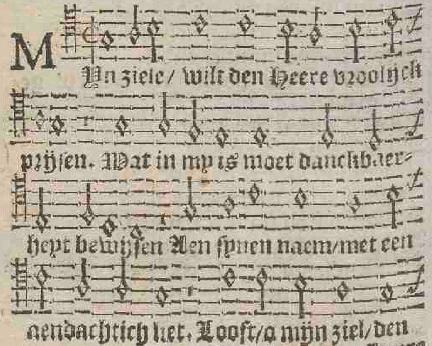 MYn ziele/ wilt den Heere vroolijck
prijsen. Wat in my is moet danckbaer-
heyt bewijsen Aen synen naem/met een
aendachtich liet. Looft/o mijn ziel/den